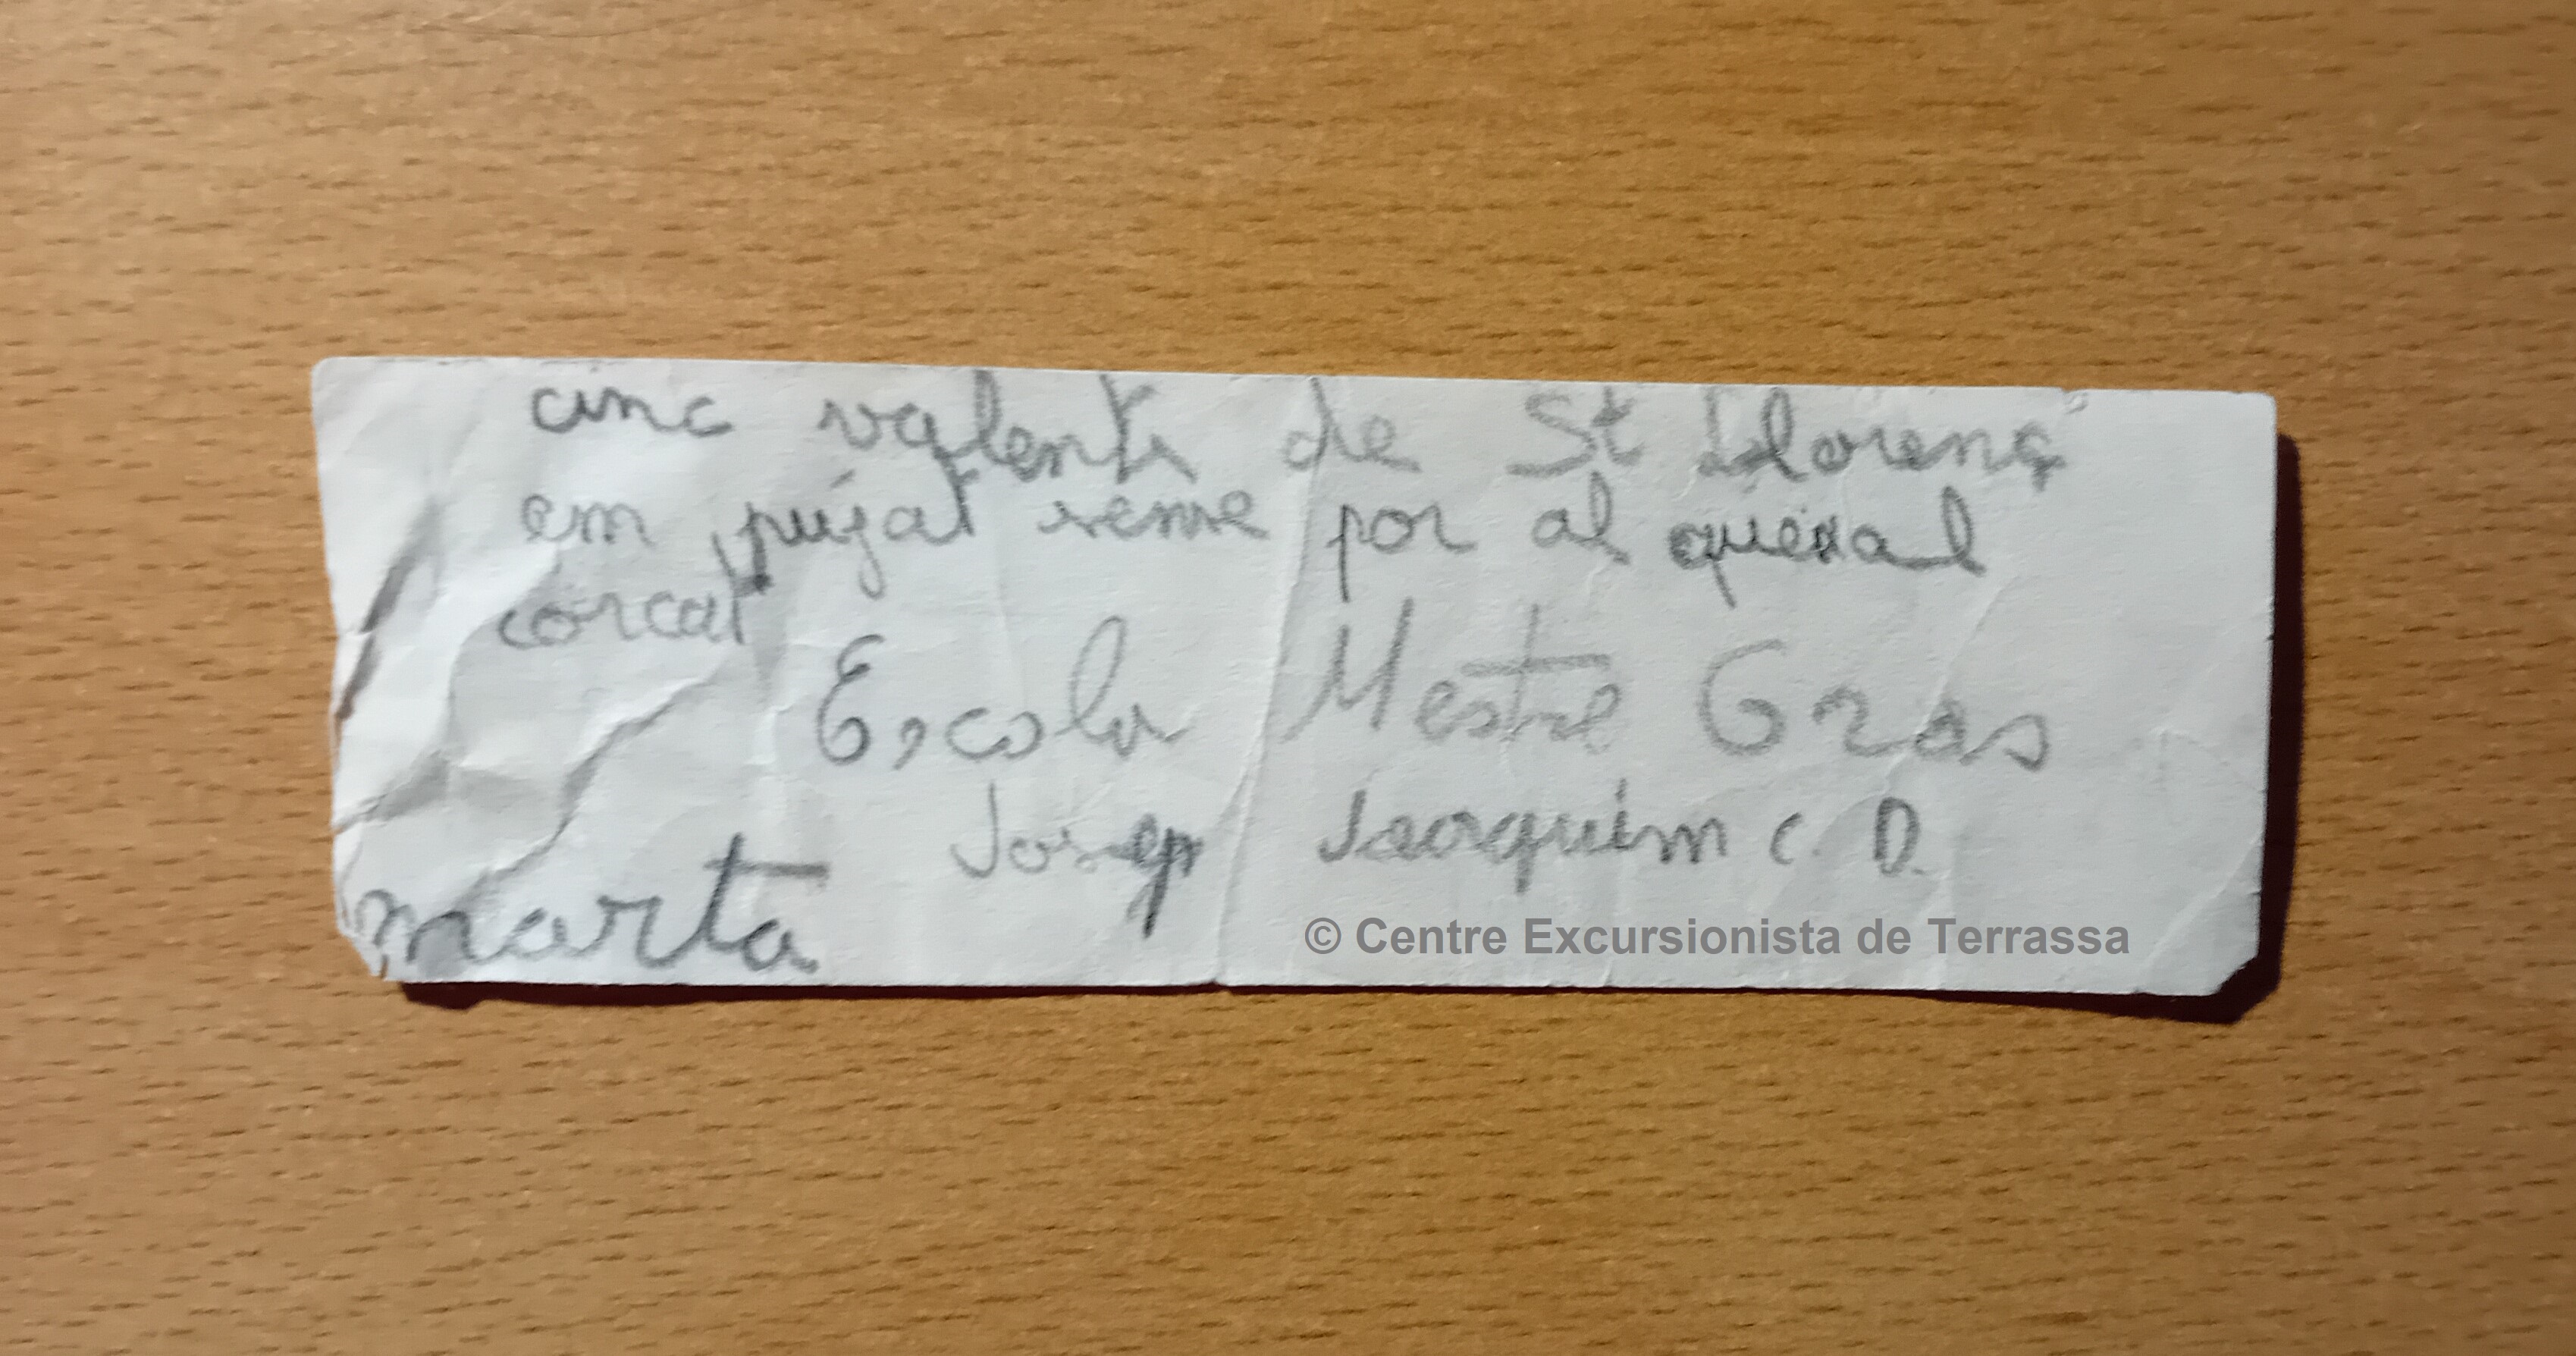 cinc valents de St Llorenç
em pujat sense por al queixal
corcat
Escola Mestre Gras
Josep Jaoquim C. D.
marta
© Centre Excursionista de Terrassa